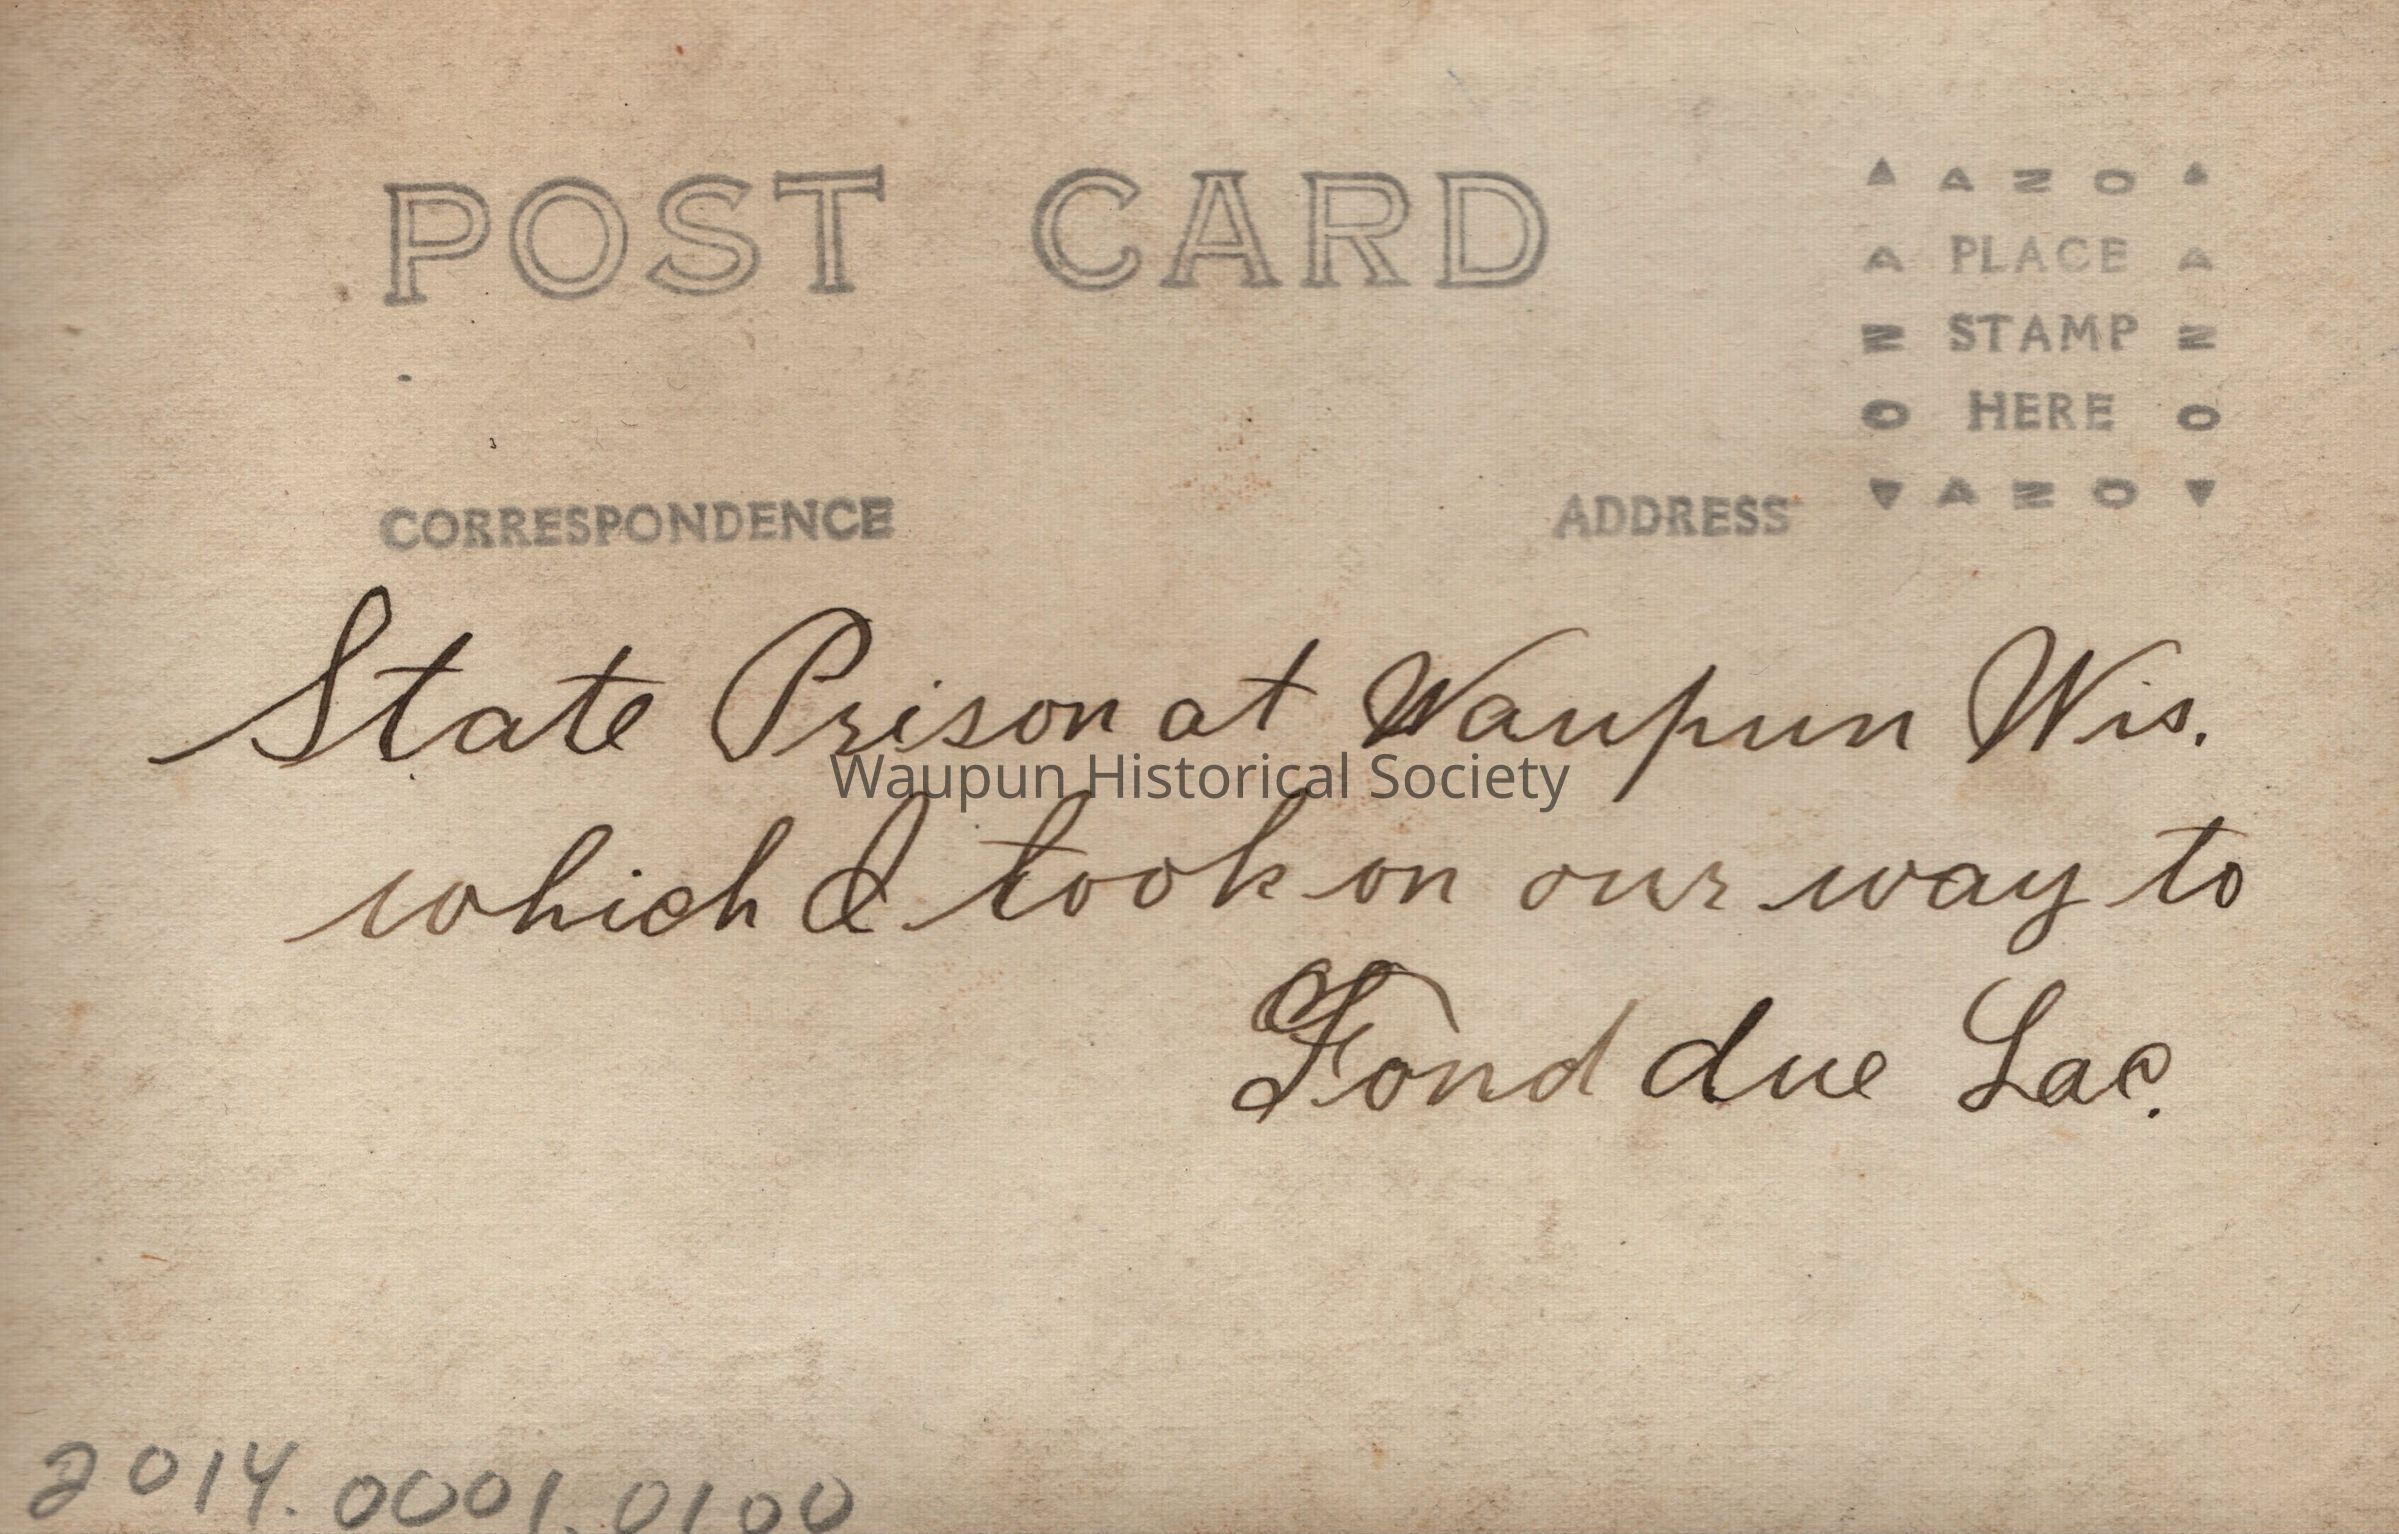 POST CARD
▲ A Z O ▲
A PLACE A
Z STAMP Z
O HERE O
▼ A Z O ▼
CORRESPONDENCE
ADDRESS
State Prison at Waupun Wis.
Waupun Historical Society
which I took on our way to
Fond due Lac.
2014.0001.0100